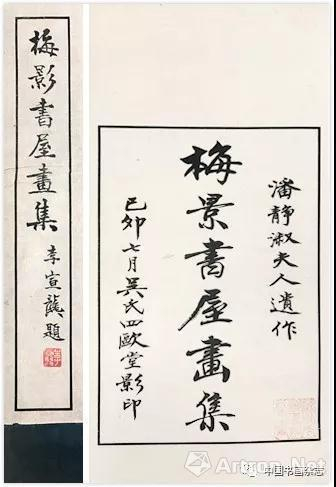 梅影書屋畫集
李宣龔題
潘靜淑夫人遺作
梅景書屋畫集
己卯七月吳氏四歐堂影印
中国书画杂志
Artron.Net